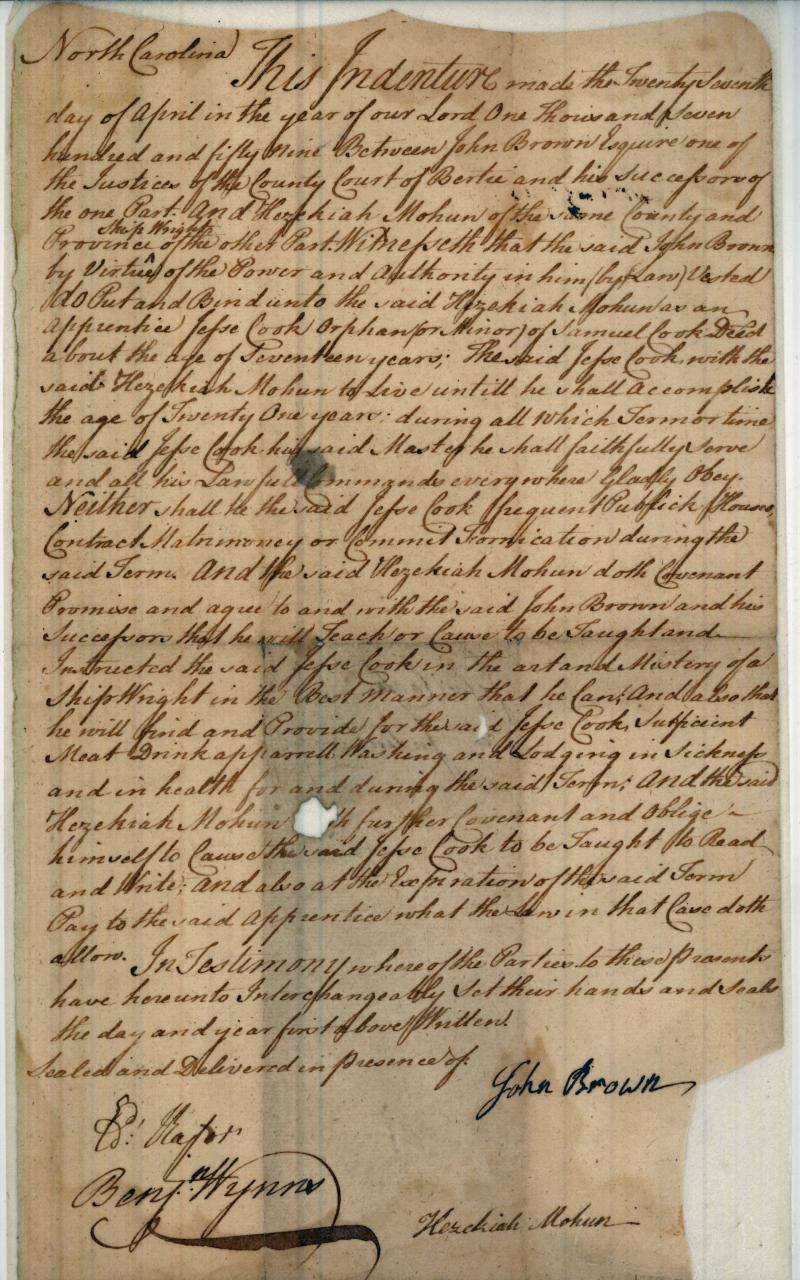 North Carolina This Indenture made the Twenty Seventh
day of April in the year of our Lord One Thousand Seven
hundred and fifty Nine Between John Brown Esquire one of
the Justices of the County Court of Bertie and his Successors of
the one Part. And Hezekiah Mohun of the same County and
Ship Wright
Province of the other Part. Witnesseth that the said John Brown
by Virtue of the Power and Authority in him (by Law) Vested
do Put and Bind unto the said Hezekiah Mohun as an
Apprentice Jesse Cook Orphan (or Minor) of Samuel Cook Decd
about the age of Seventeen years; The said Jesse Cook with the
said Hezekiah Mohun to Live untill he shall Accomplish
the age of Twenty One years; during all which Term or time
the said Jesse Cook his said Master he shall faithfully Serve
and all his Lawfull Commands everywhere Gladly Obey.
Neither shall he the said Jesse Cook frequent Publick Houses,
Contract Matrimoney or Commit Fornication during the
said Term. And the said Hezekiah Mohun doth Covenant
Promise and agree to and with the said John Brown and his
Successors that he will Teach or Cause to be Taught and
Instructed the said Jesse Cook in the art and Mistery of a
Ship Wright in the Best Manner that he Can; And also that
he will find and Provide for the said Jesse Cook, Sufficient
Meat Drink apparrell Washing and Lodging in Sickness
and in health for and during the said Term; And the said
Hezekiah Mohun th further Covenant and Oblige
himself to Cause the said Jesse Cook to be Taught to Read
and Write; And also at the Expiration of the said Term
Pay to the said Apprentice what the Law in that Case doth
allow. In Testimony whereof the Parties to these Presents
have hereunto Interchangeably Set their hands and Seals
the day and year first above Written.
Sealed and Delivered in presence of:
John Brown
Benjn Wynns
Hezekiah Mohun